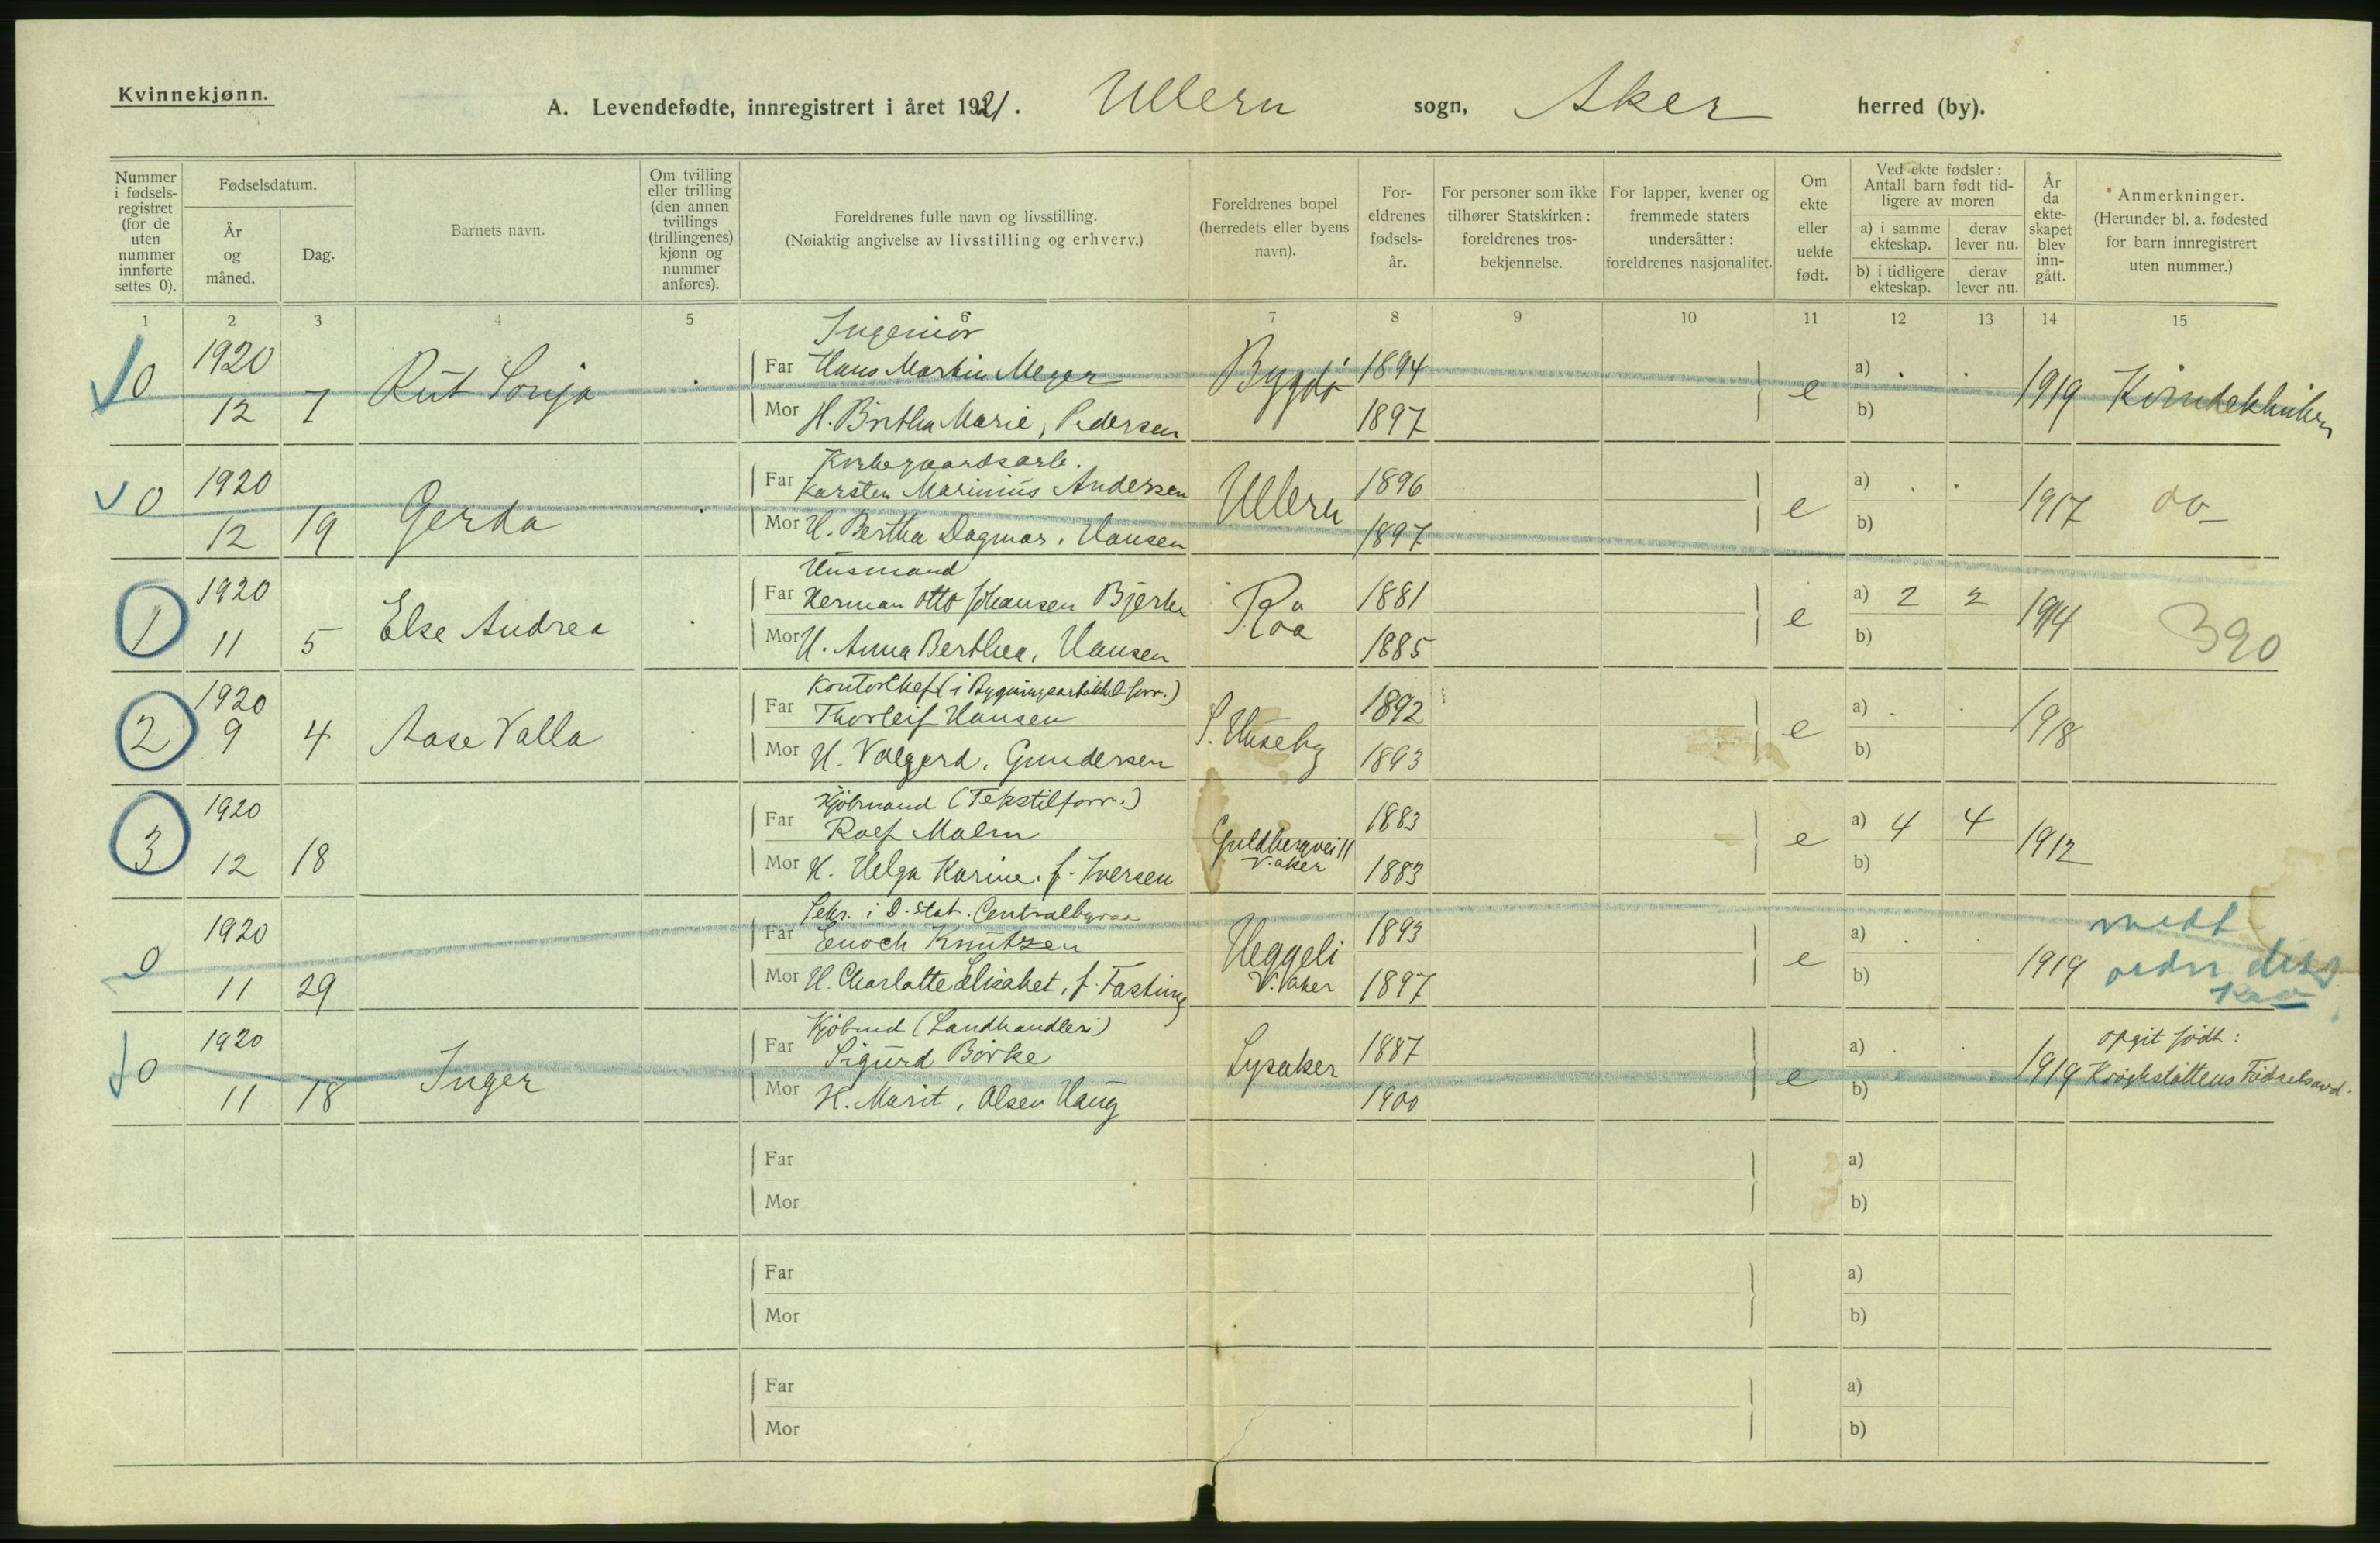 Kvinnekjønn.
A. Levendefødte, innregistrert i året 1921. Ullern sogn, Aker herred (by).
Nummer i fødsels-registret (for de uten nummer innførte settes 0).
Fødselsdatum.
År og måned.
Dag.
Barnets navn.
Om tvilling eller trilling (den annen tvillings (trillingenes) kjønn og nummer anføres).
Foreldrenes fulle navn og livsstilling.
(Nøiaktig angivelse av livsstilling og erhverv.)
Foreldrenes bopel (herredets eller byens navn).
For-eldrenes fødsels-år.
For personer som ikke tilhører Statskirken: foreldrenes tros-bekjennelse.
For lapper, kvener og fremmede staters undersåtter: foreldrenes nasjonalitet.
Om ekte eller uekte født.
Ved ekte fødsler: Antall barn født tid-ligere av moren
a) i samme ekteskap.
derav lever nu.
b) i tidligere ekteskap.
derav lever nu.
År da ekte-skapet blev inn-gått.
Anmerkninger.
(Herunder bl. a. fødested for barn innregistrert uten nummer.)
1 2 3 4 5 6 7 8 9 10 11 12 13 14 15
Ingeniør
0 1920 Far Hans Martin Meyer Bygdø 1894 a) . .
12 7 Rut Sonja . Mor H. Birtha Marie, Pedersen 1897 e b) 1919 Kvindeklinken
Kirkegaardsarb.
0 1920 Far Karsten Marinius Andersen Ullern 1896 a) . .
12 19 Gerda . Mor H. Bertha Dagmar, Hansen 1897 e b) 1917 do
Husmand
1 1920 Far Herman Otto Johansen Bjerke Roa 1881 a) 2 2
11 5 Else Andrea . Mor H. Anna Berthea, Hansen 1885 e b) 1914 390
Kontorchef (i Bygningsartikkel forr.)
2 1920 Far Thorleif Hansen S. Huseby 1892 a) . .
9 4 Aase Valla . Mor H. Valgerd, Gundersen 1893 e b) 1918
Kjøbmand (Tekstilforr.)
3 1920 Far Rolf Malm Guldbergvei 11 1883 a) 4 4
12 18 Mor H. Helga Karine, f. Iversen V. Aker 1883 e b) 1912
Sekr. i D. Stat. Centralbyraa
0 1920 Far Enoch Knutzen Heggeli 1893 a) . .
11 29 Mor H. Charlotte Elisabet, f. Fasting V. Aker 1897 e b) 1919
Kjøbmd (Landhandleri)
0 1920 Far Sigurd Børke Lysaker 1887 a) . . opgit født:
11 18 Inger Mor H. Marit, Olsen Haug 1900 e b) 1919 Kroghstøttens Fødselsavd.
Far a)
Mor b)
Far a)
Mor b)
Far a)
Mor b)